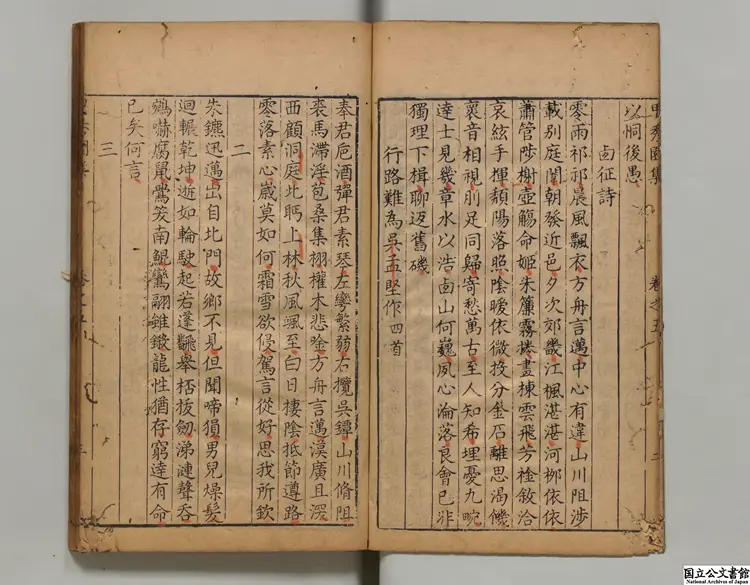 以悯後愚
卤征詩
零雨祁祁晨風飄衣方舟言邁中心有違山川阻涉
載别庭闈朝發近邑夕次郊畿江楓湛湛河栁依依
蕭管陟榭壺觴命姬朱簾霧捲畫棟雲飛芳袷敘洽
哀絃手揮頽陽落照陰曖依微投分金石離思渴饑
裹音相視刖足同歸寄愁萬古至人知希埋憂九畹
達士見幾章水以浩卤山何巍夙心淪落良會已非
獨理下楫聊迈舊磯
行路難為吳孟堅作四首
奉君卮酒彈君素琴左欒繁蒻右攬吳鐔山川脩阻
裘馬滯浮苞桑集栩權木悲唫方舟言邁漠廣且深
西顧洞庭北眄上林秋風颯至白日棲陰抵節遵路
零落素心嵗莫如何霜雪欲侵駕言從好思我所欽
二
朱鑣迅邁出自北門故鄉不見但聞啼猿男兒燥髮
迴輾乾坤逝如輪駛起若蓬飜舉桮拔劒涕漣聲吞
鵷嚇腐鼠鷽笑南鯤鸞翮雖鎩龍性猶存窮達有命
已矣何言
三
国立公文書館
National Archives of Japan